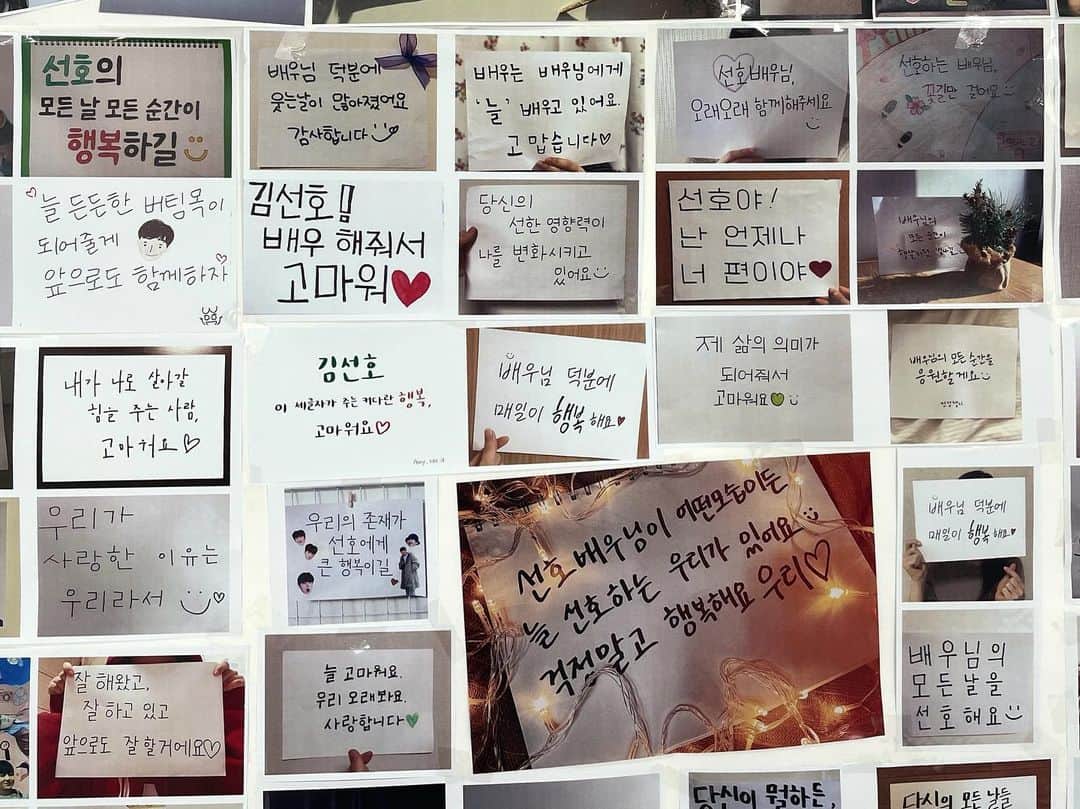 선호의
모든 날 모든 순간이
행복하길
배우님 덕분에
웃는날이 많아졌어요
감사합니다
배우는 배우님에게
'늘' 배우고 있어요.
고맙습니다♡
선호배우님,
오래오래 함께해주세요
선호하는 배우님,
꽃길만 걸어요
늘 든든한 버팀목이
되어줄게
앞으로도 함께하자
김선호!!
배우 해줘서
고마워♥
당신의
선한 영향력이
나를 변화시키고
있어요
선호야!
난 언제나
너 편이야♥
배우님의
모든 순간이
내가 나로 살아갈
힘을 주는 사람,
고마워요♡
김선호
이 세글자가 주는 커다란 행복,
고마워요♡
배우님 덕분에
매일이 행복해요♥
제 삶의 의미가
되어줘서
고마워요
배우님의 모든 순간을
응원할게요
우리가
사랑한 이유는
우리라서
우리의 존재가
선호에게
큰 행복이길
선호배우님이 어떤모습이든
늘 선호하는 우리가 있어요
걱정말고 행복해요 우리♡
배우님 덕분에
매일이 행복해요♥
잘 해왔고,
잘 하고 있고
앞으로도 잘 할거에요♡
늘 고마워요.
우리 오래봐요.
사랑합니다
배우님의
모든날을
선호해요
당신이 뭘하든,
당신의 모든 날들